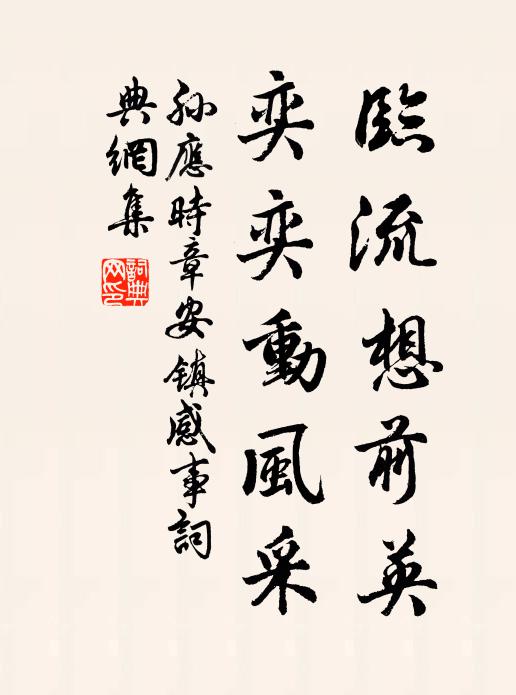 臨流想前英
奕奕動風采
孫應時章安鎮感事詞
典網集
詞典
网印